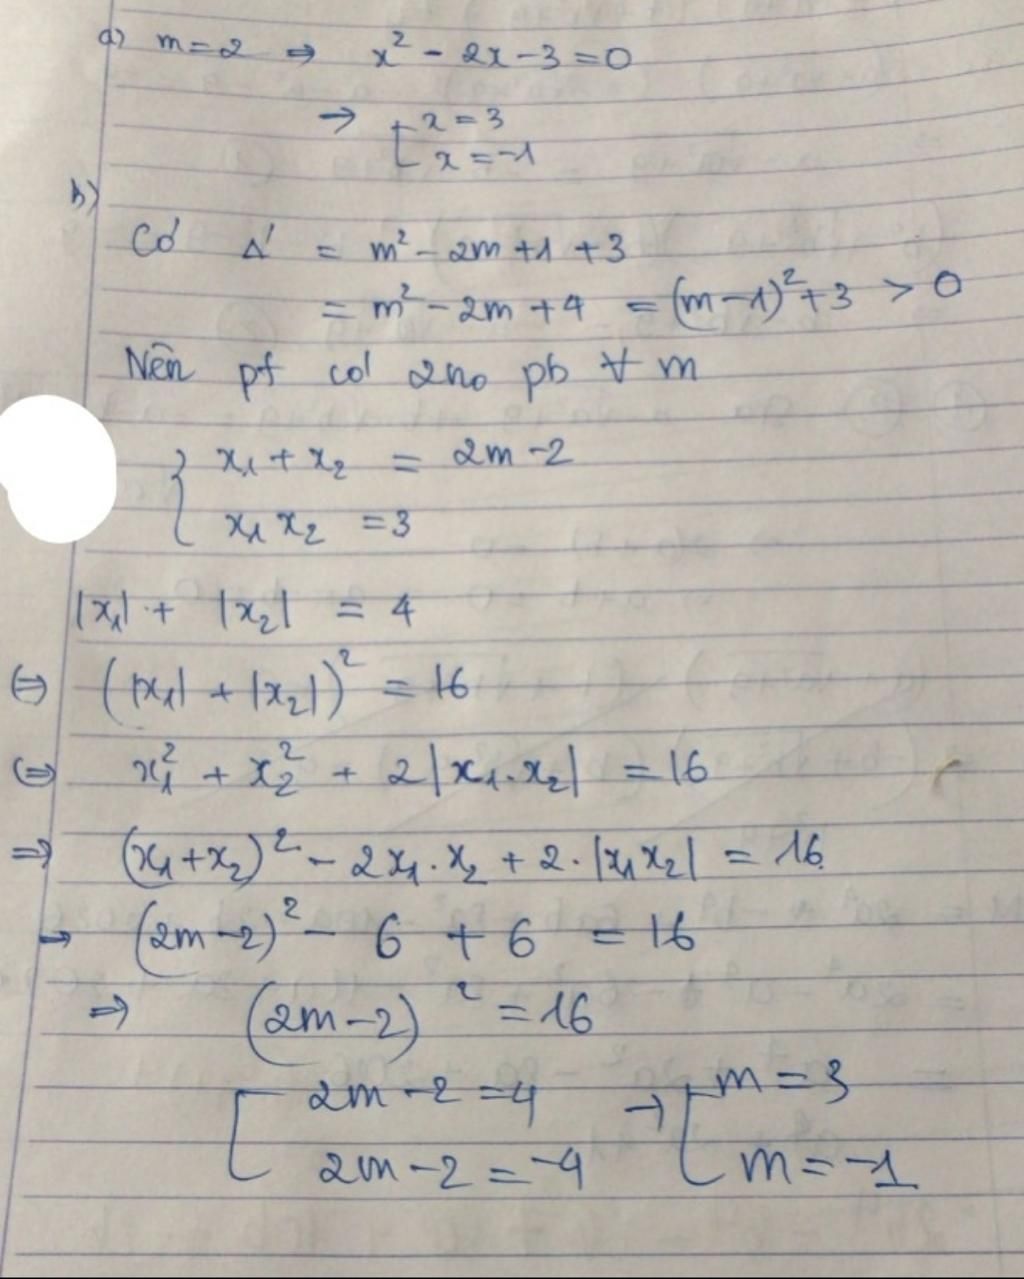 a) m = 2 ⇒ x² - 2x - 3 = 0
→ [ x = 3
x = -1
b)
Có Δ' = m² - 2m + 1 + 3
= m² - 2m + 4 = (m - 1)² + 3 > 0
Nên pt có 2no pb ∀ m
{ x₁ + x₂ = 2m - 2
x₁ x₂ = 3
|x₁| + |x₂| = 4
⇔ (|x₁| + |x₂|)² = 16
⇔ x₁² + x₂² + 2|x₁.x₂| = 16
⇒ (x₁ + x₂)² - 2x₁.x₂ + 2.|x₁x₂| = 16
→ (2m - 2)² - 6 + 6 = 16
⇒ (2m - 2)² = 16
[ 2m - 2 = 4 → [ m = 3
2m - 2 = -4 m = -1